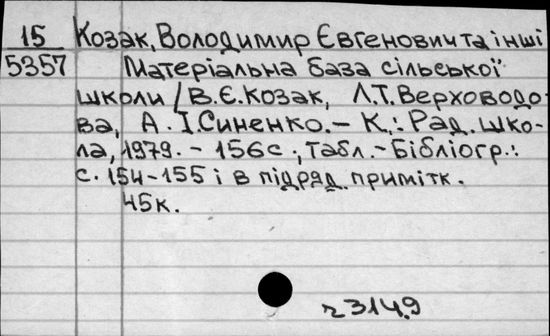 15 Козак, Володимир Євгенович та інші
5357 Матеріальна база сільської
школи / В.Є.Козак, Л.Т.Верховодо-
ва, А.І.Синенко. – К.: Рад. шко-
ла, 1979. – 156с.; табл. – Бібліогр.:
с. 154-155 і в підряд. примітк.
45к.
r3149